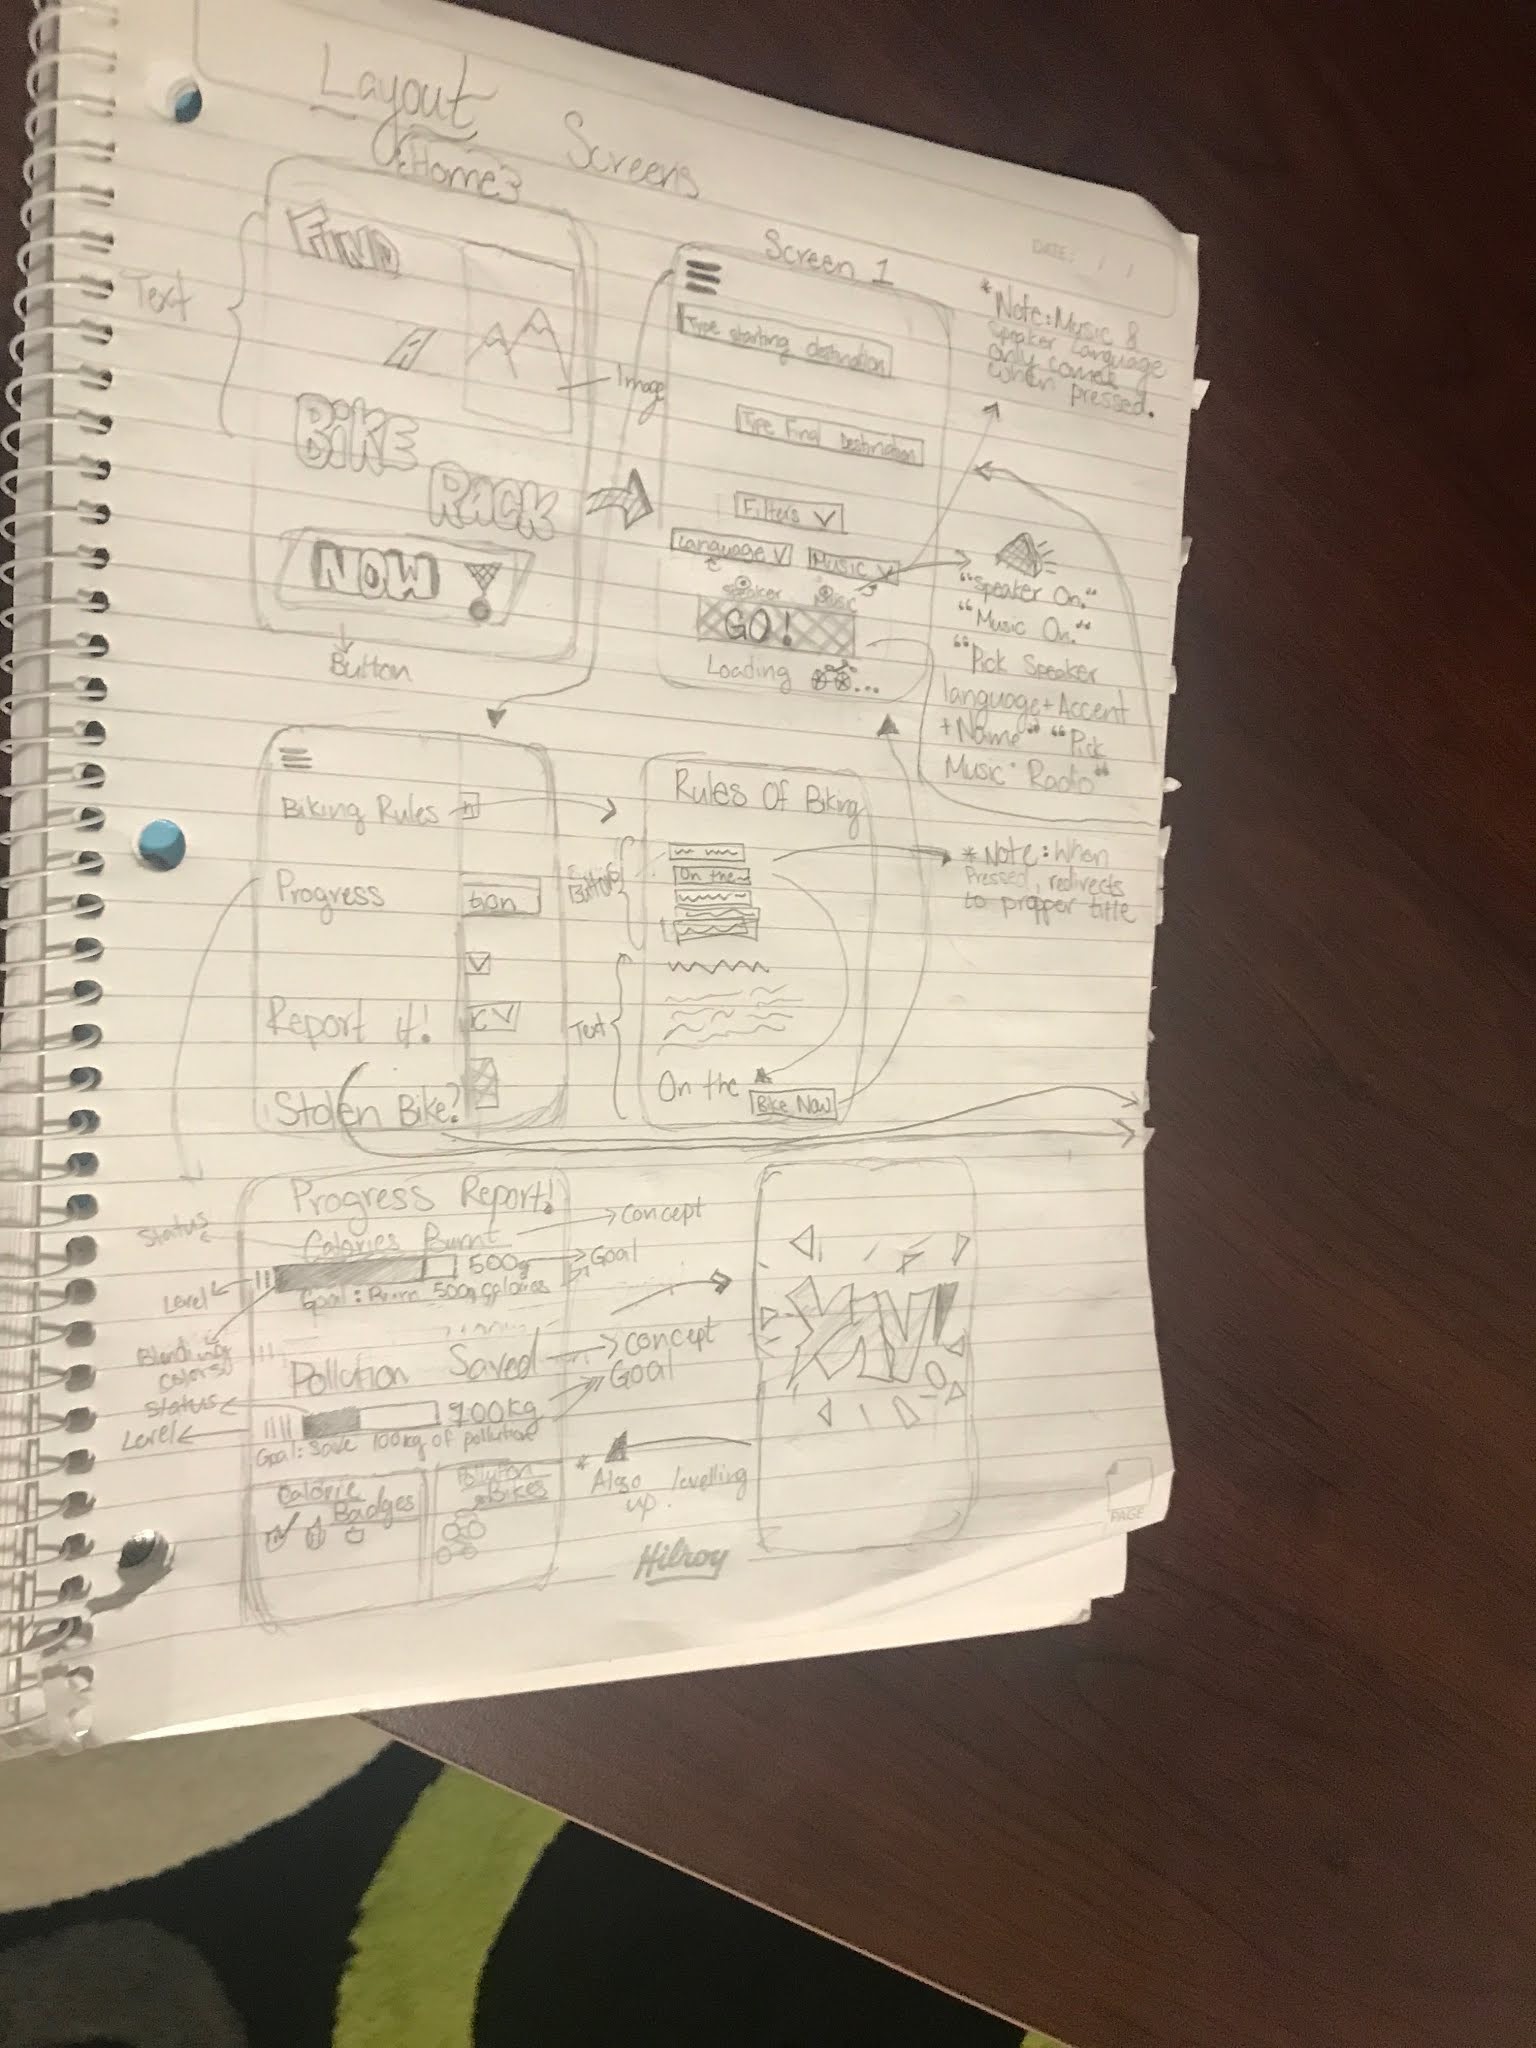 Layout
Screens
Home
Text
FIND
A
Image
BIKE
RACK
NOW!
Button
Screen 1
Type starting destination
Type Final Destination
Filters
Language
Music
Speaker
Music
GO!
Loading ...
DATE: / /
*Note: Music &
Speaker Language
only comes
when pressed.
"Speaker On."
"Music On."
"Pick Speaker
language + Accent
+ Name" "Pick
Music Radio"
Biking Rules
n
Progress
tion
Report it!
Stolen Bike?
Rules Of Biking
On the
Text
On the
Bike Now
*Note: When
Pressed, redirects
to propper title
Progress Report!
Status
Calories Burnt
Concept
500g
Goal
Level
Goal: Burn 500g calories
Pollution Saved
Concept
Goal
Status
100kg
Level
Goal: Save 100kg of pollution
Calorie
Badges
Pollution
Bikes
* Also levelling
up.
Hilroy
PAGE